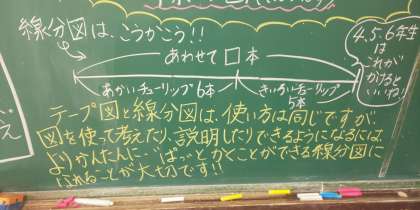 線分図は、こうかこう!!
あわせて□本
あかいチューリップ6本
きいろいチューリップ
5本
4.5.6年生
は
これが
かけると
いいね!
テープ図と線分図は、使い方は同じですが
図を使って考えたり、説明したりできるようになるには
よりかんたんに"ぱっ"とかくことができる線分図に
ふれることが大切です!!